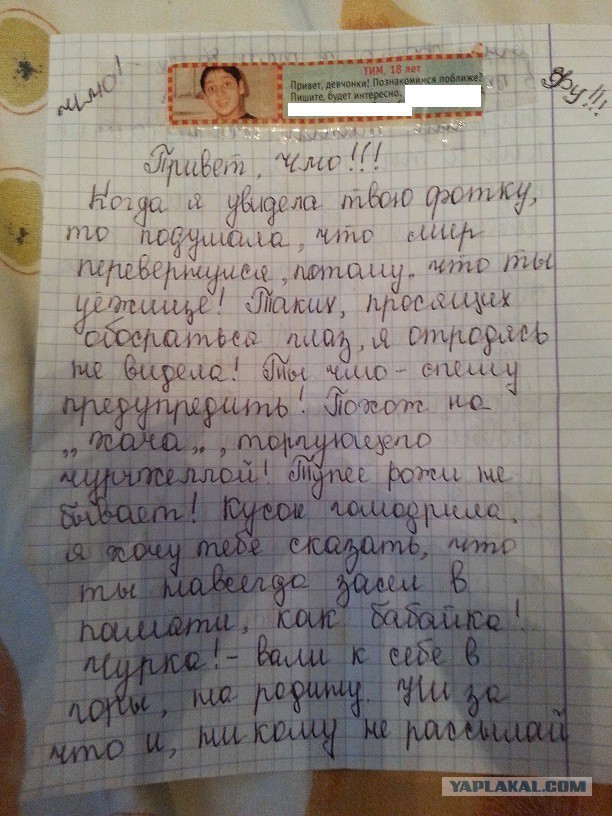 чмо!
ТИМ, 18 лет
Привет, девчонки! Познакомимся поближе?
Пишите, будет интересно.
Фу!!!
Привет, чмо!!!
Когда я увидела твою фотку,
то подумала, что мир
перевернулся, потому, что ты
уёжище! Таких, просящих
обосраться глаз, я отродясь
не видела! Ты чмо - спешу
предупредить! Похож на
„хача„, торгующего
чурчхеллой! Тупее рожи не
бывает! Кусок гомодрила,
я хочу тебе сказать, что
ты навсегда засел в
памяти, как бабайка!
Чурка! - вали к себе в
горы, на родину. Ни за
что и, никому не рассылай
YAPLAKAL.COM